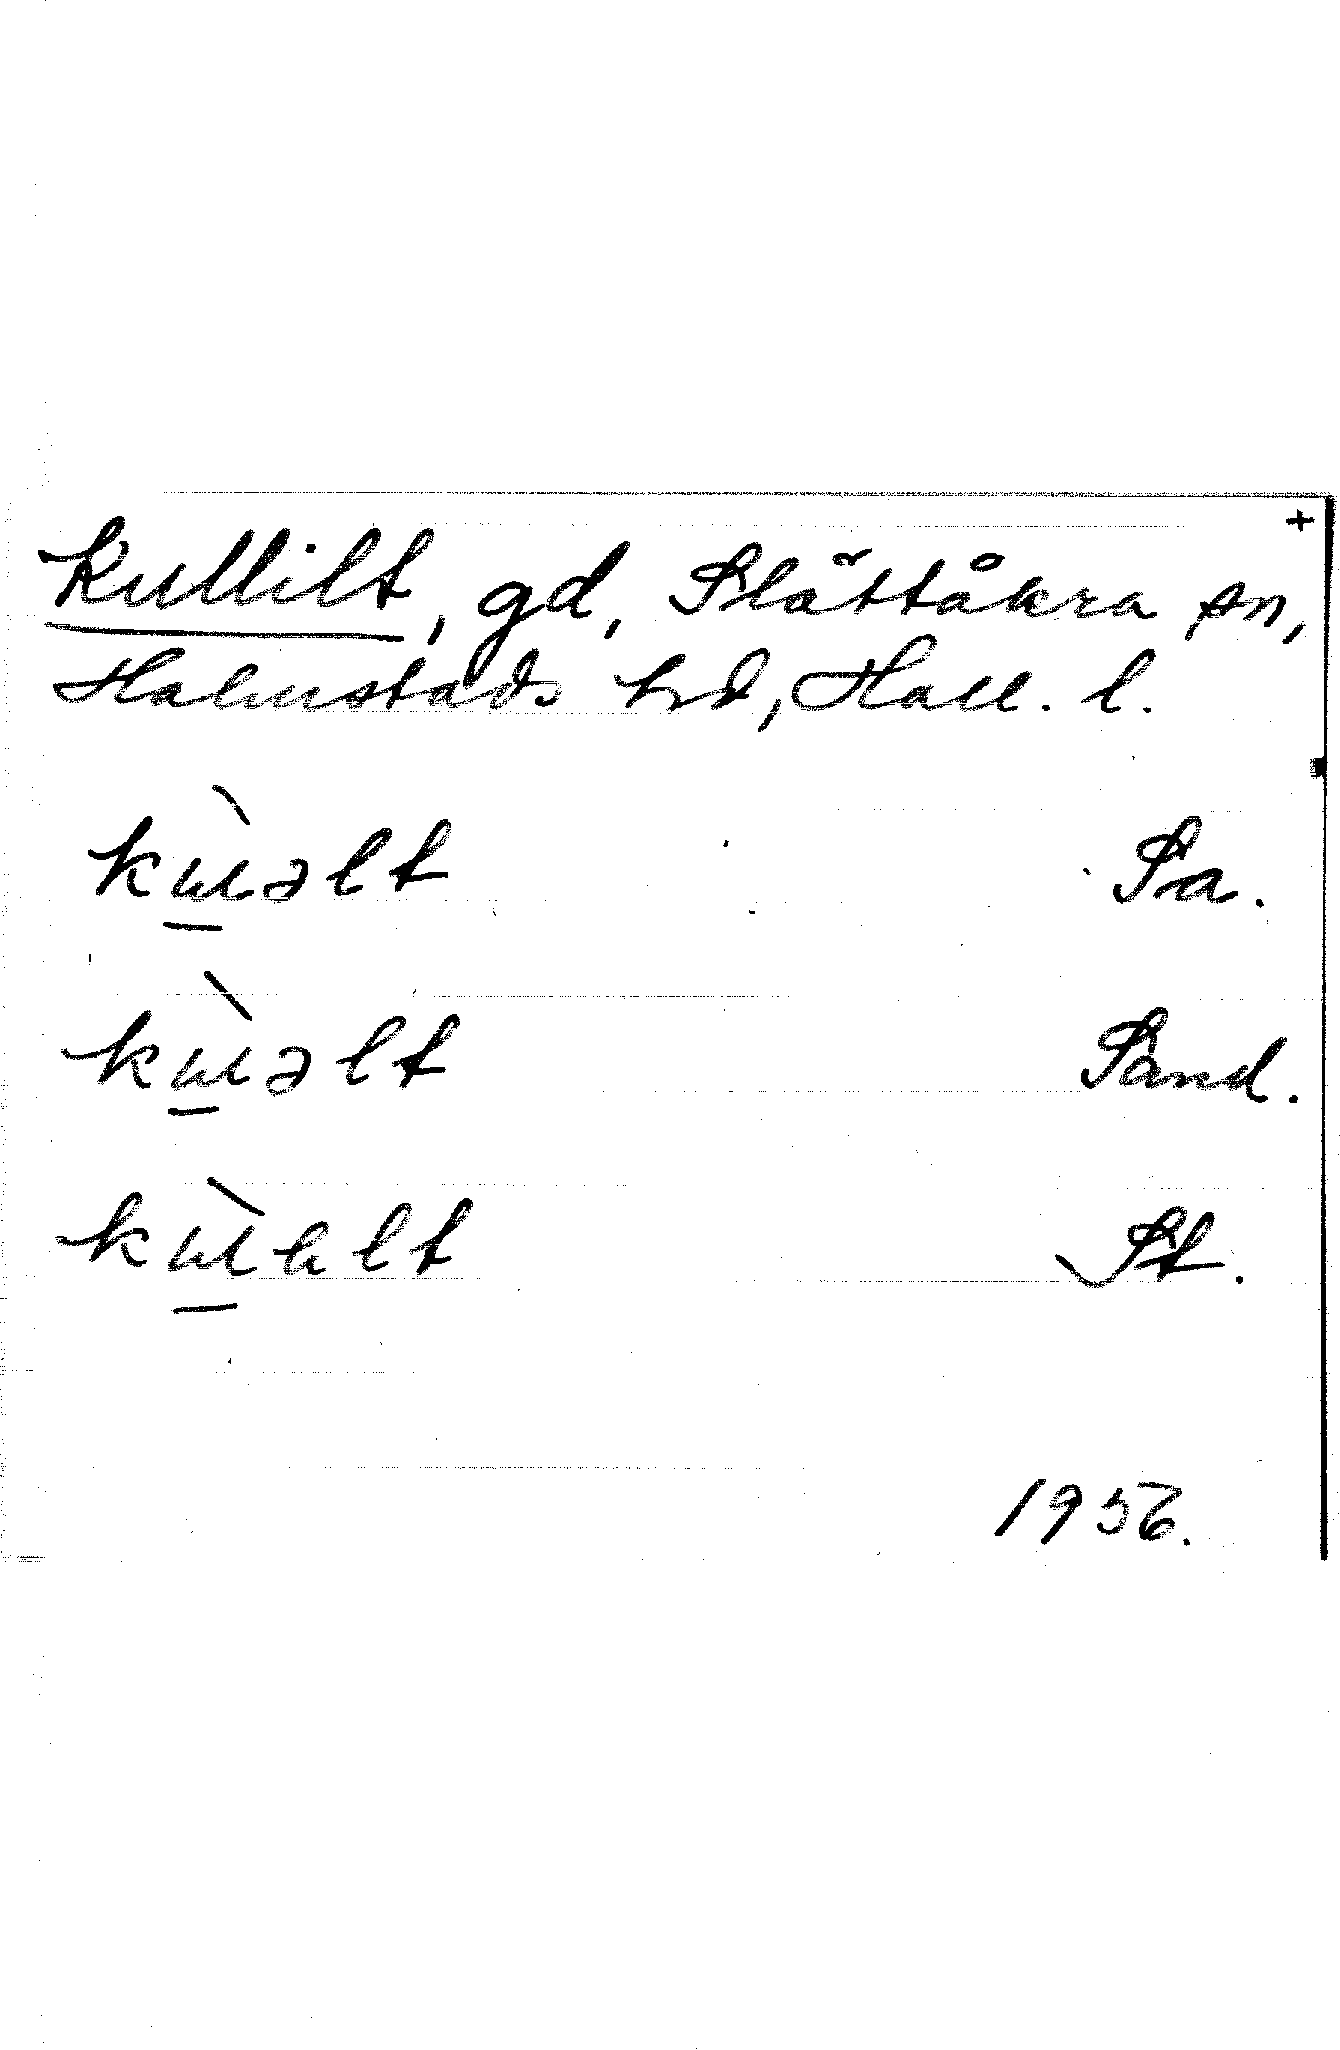 +
Kullilt, gd, Slättåkra sn,
Halmstads hd, Hall. l.
kɯ̱̀əlt Sa.
kɯ̱̀əlt Sand.
St.
1956.